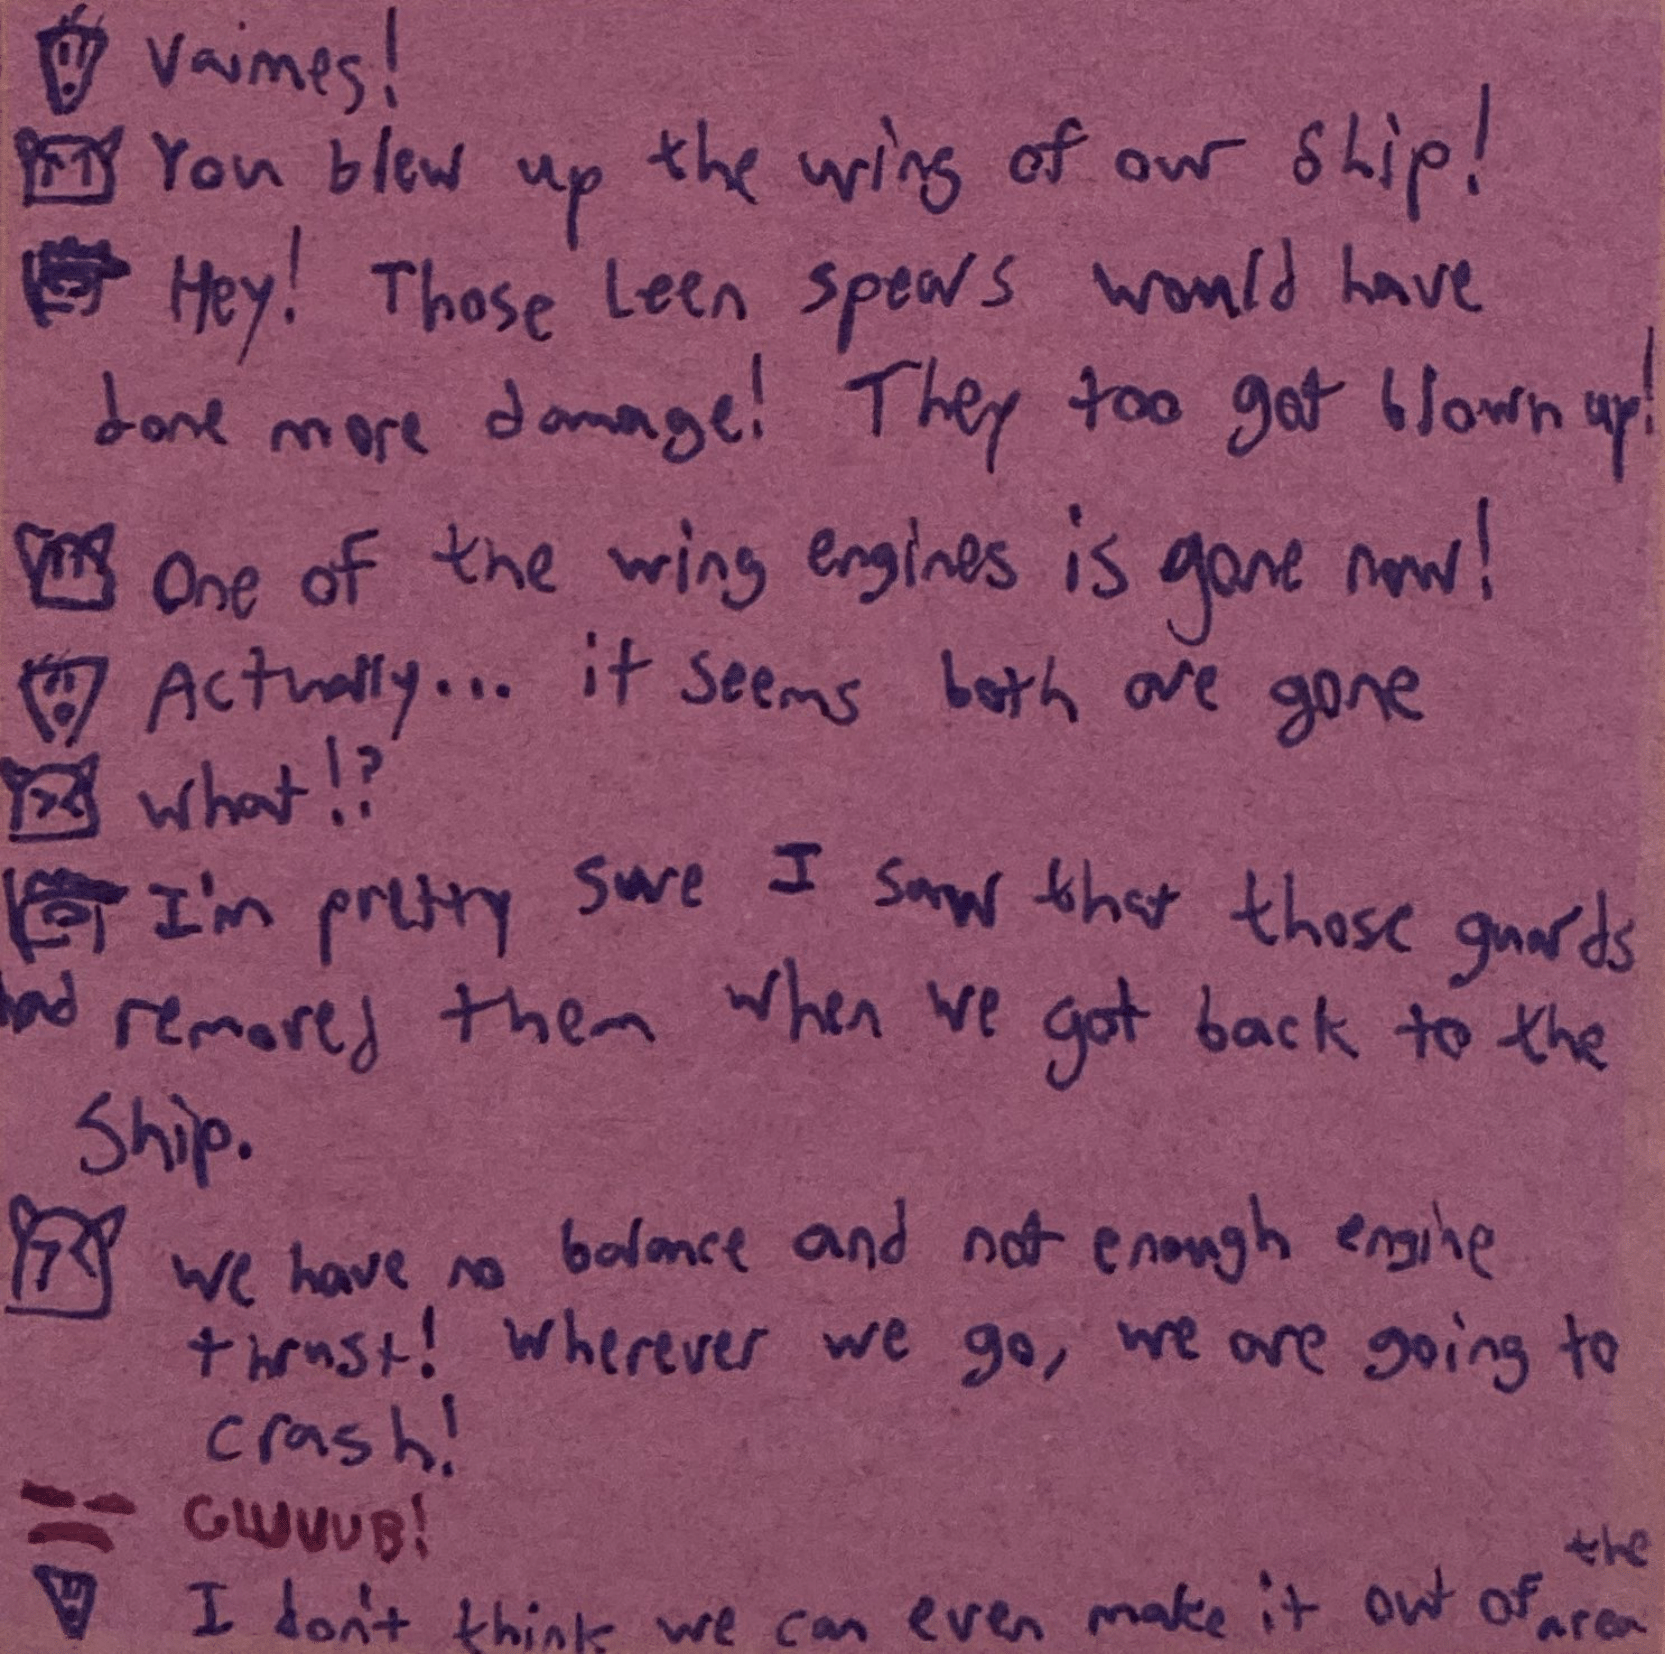 Vaimes!
You blew up the wing of our ship!
Hey! Those Leen spears would have
done more damage! They too got blown up!
One of the wing engines is gone now!
Actually... it seems both are gone
What!?
I'm pretty sure I saw that those guards
had removed them when we got back to the
Ship.
We have no balance and not enough engine
thrust! Wherever we go, we are going to
crash!
GWUUUB!
the
I don't think we can even make it out of area